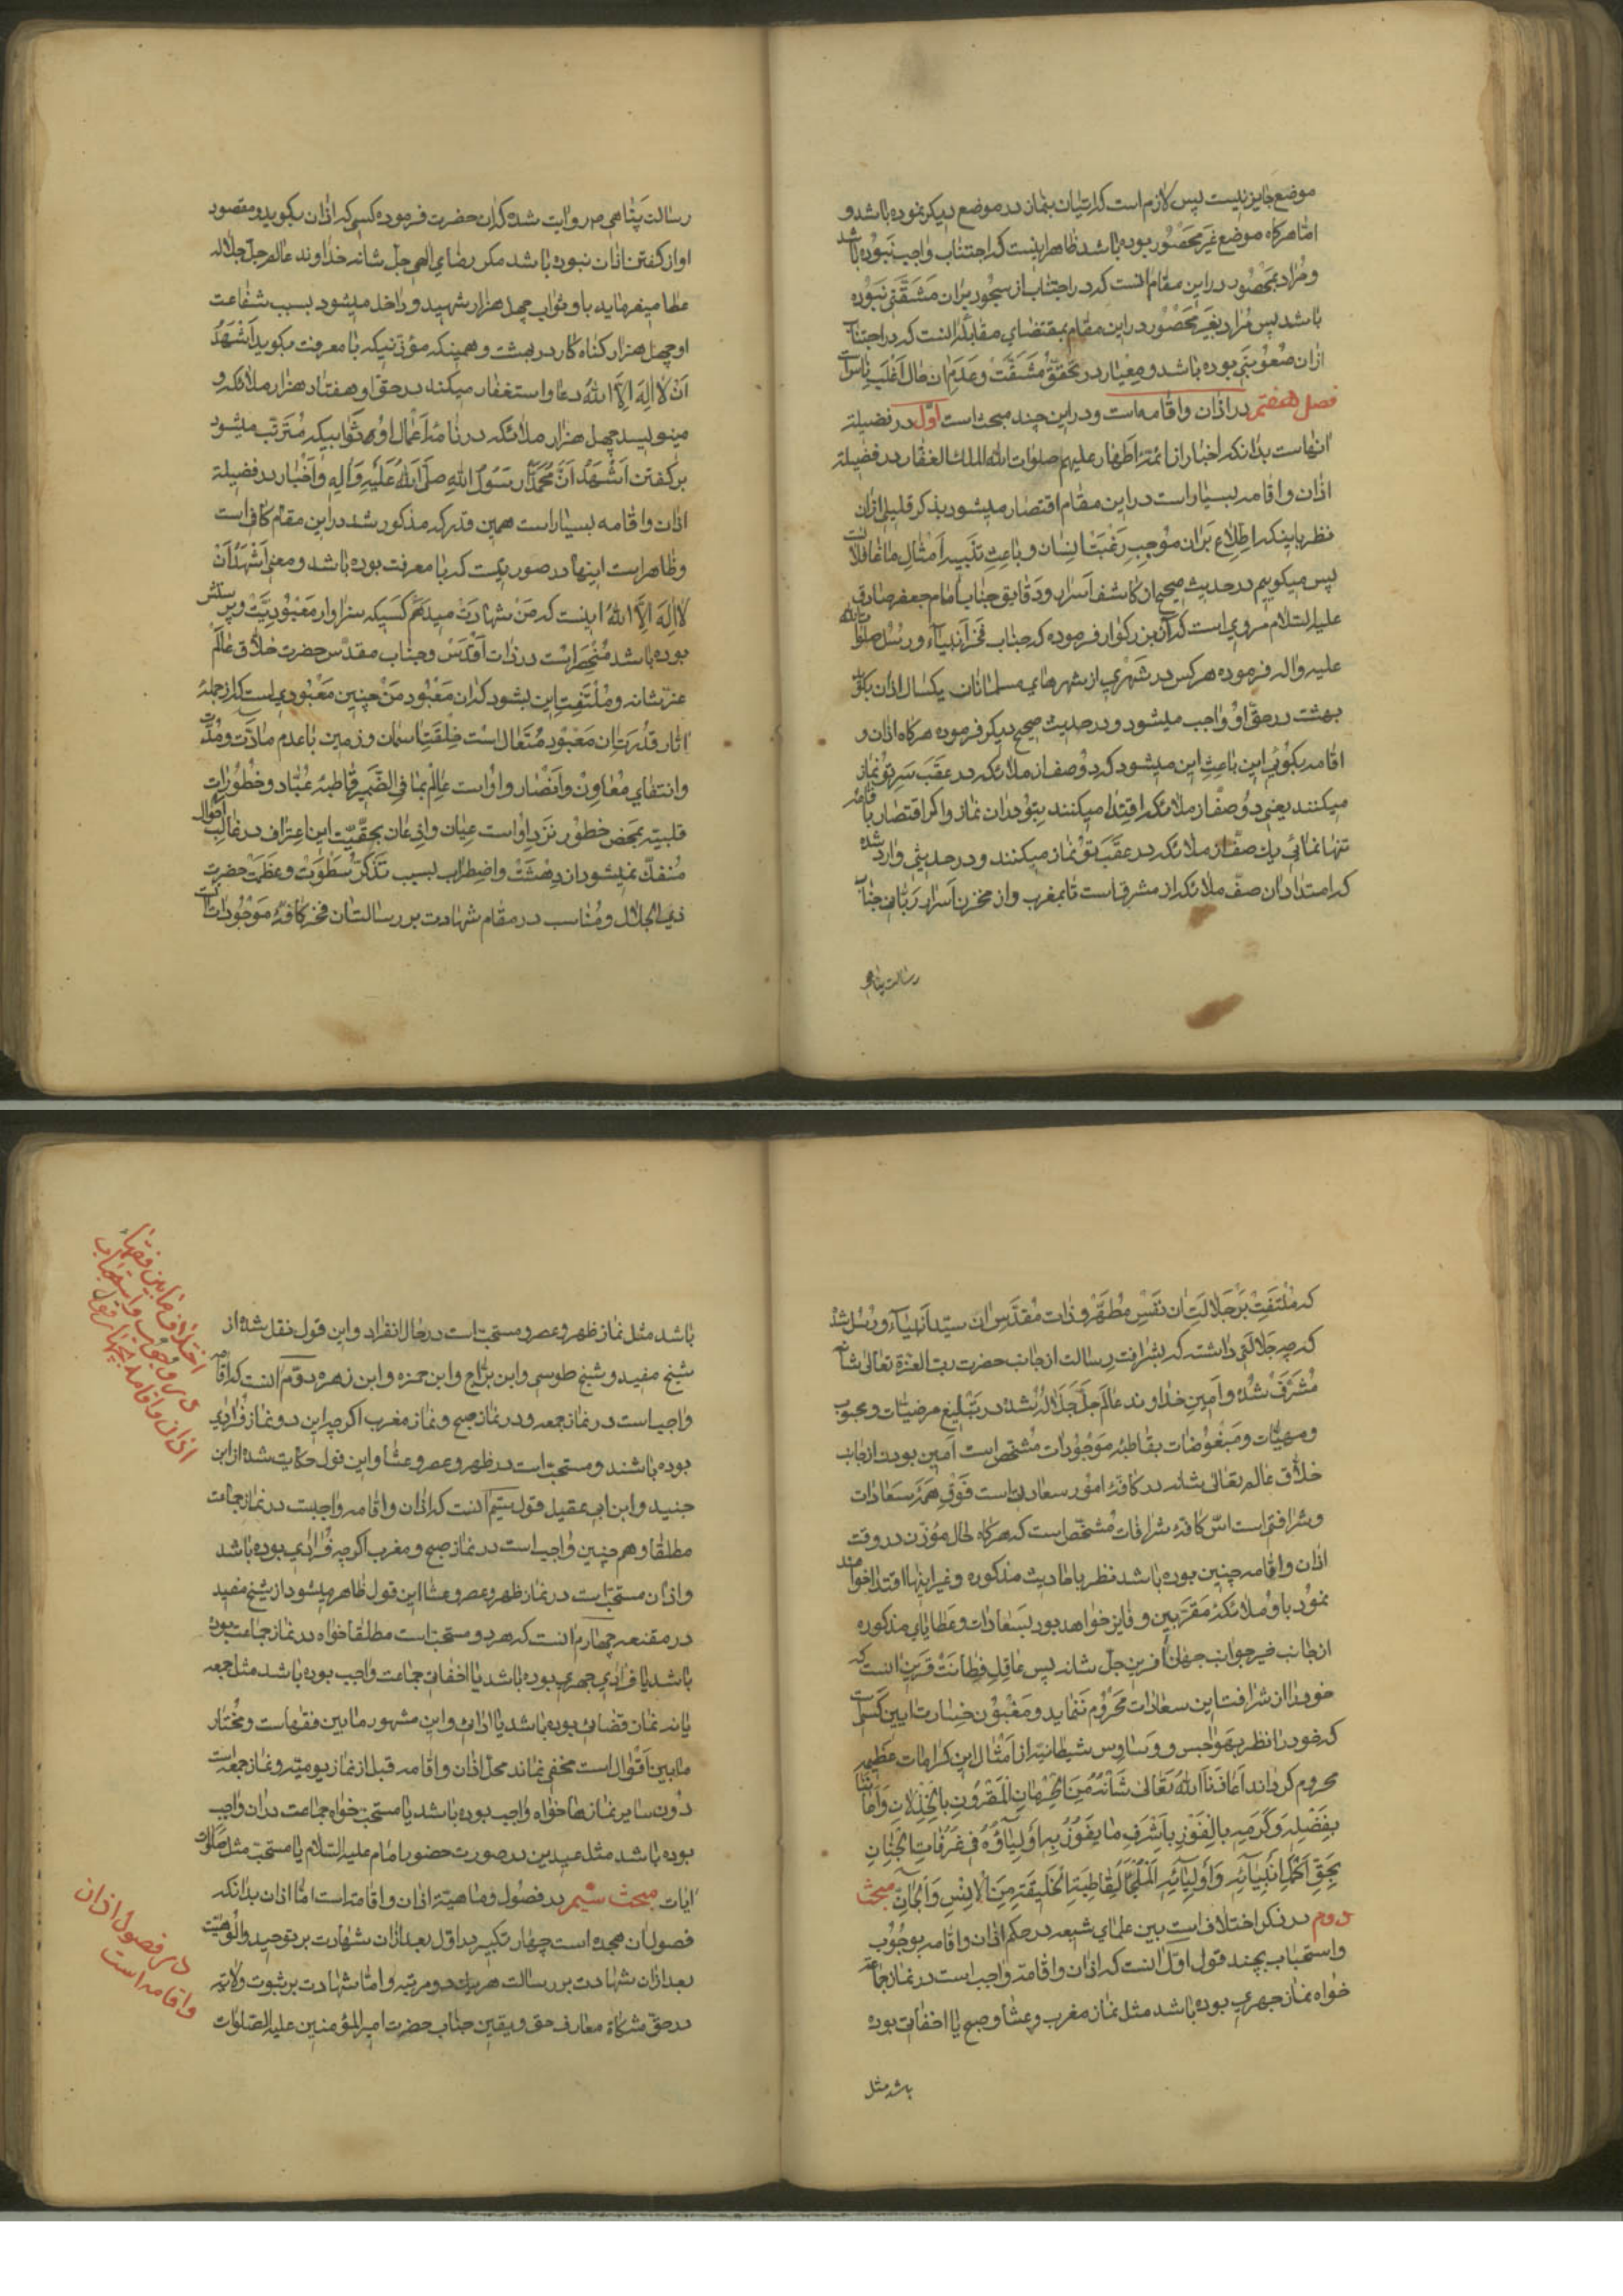 موضع جایز نیست پس لازم است که اتیان بنماز در موضع دیکر نموده باشد و
اما هرکاه موضع غیر محصور بوده باشد ظاهر اینست که اجتناب واجب نبوده باشد
و مراد بمحصور در این مقام انست که در اجتناب از سجود بران مشقتی نبوده
باشد پس مراد بغیر محصور در این مقام بمقتضای مقابله انست که در اجتناب
ازان صعوبتی بوده باشد و معیار در تحقق مشقت و عدم ان حال اغلب ناس است
فصل هفتم در اذان واقامه است و در این چند مبحث است اول در فضیلة
انهاست بدانکه اخبار از ائمه اطهار علیهم صلوات الله الملک الغفار در فضیلة
اذان واقامه بسیار است در این مقام اقتصار میشود بذکر قلیلی ازان
نظر باینکه اطلاع بران موجب رغبت انسان و باعث تنبیه امثال ما غافلان است
پس میکوییم در حدیث صحیح ان کاشف اسرار و دقایق جناب امام جعفر صادق
علیه السلام مروی است که آن بزرکوار فرموده که جناب فخر انبیاء و رسل صلوات الله
علیه واله فرموده هرکس در شهری از شهرهای مسلمانان یکسال اذان بکوید
بهشت در حق او واجب میشود و در حدیث صحیح دیکر فرموده هرکاه اذان و
اقامه بکوئی این باعث این میشود که دو صف از ملائکه در عقب سر تو نماز
میکنند یعنی دو صف از ملائکه اقتدا میکنند بتو در ان نماز واکر اقتصار باقامه
تنها نمائی یک صف از ملائکه در عقب تو نماز میکنند و در حدیثی وارد شده
که امتداد ان صف ملائکه از مشرق است تا بمغرب و از مخزن اسرار ربانی جناب
رسالت پناهی
رسالت پناهی مروایت شده که ان حضرت فرموده کسی که اذان بکوید و مقصود
او از کفتن اذان نبوده باشد مکر رضای الهی جل شانه خداوند عالم جل جلاله
عطا میفرماید باو ثواب چهل هزار شهید و داخل میشود بسبب شفاعت
او چهل هزار کناه کار در بهشت و همینکه مؤذنیکه با معرفت میکوید اشهد
ان لا اله الا الله دعا واستغفار میکنند در حق او هفتاد هزار ملائکه و
مینویسد چهل هزار ملائکه در نامه اعمال او ثوابیکه مترتب میشود
بر کفتن اشهد ان محمدا رسول الله صلی الله علیه واله واخبار در فضیلة
اذان واقامه بسیار است همین قدر که مذکور شد در این مقام کافی است
وظاهر است اینها در صورتیست که با معرفت بوده باشد و معنی اشهد ان
لا اله الا الله اینست که من شهادت میدهم کسیکه سزاوار معبودیت و پرستش
بوده باشد منحصر است در ذات اقدس و جناب مقدس حضرت خلاق عالم
عز شانه و ملتفت این بشود که ان معبود من چنین معبودی است که از جمله
اثار قدرت ان معبود متعال است خلقت اسمان و زمین با عدم مادت و مدت
وانتفای معاون وانصار و او است عالم بما فی الضمیر قاطبه عباد و خطورات
قلبیه بمحض خطور نزد او است عیان واذعان بحقیت این اعتراف در غالب احوال
منفک نمیشود از دهشت و اضطراب بسبب تذکر سطوت و عظمت حضرت
ذی الجلال و مناسب در مقام شهادت بر رسالت ان فخر کافه موجودات انست
که ملتفت بر جلالت ان نفس مطهر و ذات مقدس ان سید انبیاء و رسل شد
که چه جلالتی داشته که بشرافت رسالت از جانب حضرت رب العزة تعالی شانه
مشرف شده وامین خداوند عالم جل جلاله شده در تبلیغ مرضیات و محبوب
و منهیات و مبغوضات بقاطبه موجودات مشخص است امین بودن از جانب
خلاق عالم تعالی شانه در کافه امور سعادتی است فوق همه سعادات
و شرافتی است اس کافه شرافات مشخص است که هرکاه حال مؤذن در وقت
اذان واقامه چنین بوده باشد نظر باحادیث مذکوره و غیر اینها اقتدا خواهند
نمود باو ملائکه مقربین و فایز خواهد بود بسعادات و عطایای مذکوره
از جانب خیر جواب جهان آفرین جل شانه پس عاقل فطانت قرین انست که
خود را از شرافت این سعادات محروم ننماید و مغبون خسارت ایین کسی است
که خود را نظر بهواجس و وساوس شیطانیه از امثال این کرامات عظیمه
محروم کرداند اعاذنا الله تعالی شانه من الحرمان المقرون بالخذلان وامانتنا
بفضله وکرمه بالفوز باشرف ما یفوز به اولیاؤه فی غرفات الجنان
بحق اکمل انبیائه واولیائه الملجأ لقاطبة الخلیقة من الانس والجان مبحث
دوم در ذکر اختلاف است بین علمای شیعه در حکم اذان واقامه بوجوب
واستحباب بچند قول اول انست که اذان واقامه واجب است در نماز جماعة
خواه نماز جهری بوده باشد مثل نماز مغرب و عشا و صبح یا اخفاتی بوده
باشد مثل
باشد مثل نماز ظهر و عصر و مستحب است در حال انفراد و این قول نقل شده از
شیخ مفید و شیخ طوسی و ابن براج و ابن حمزه و ابن زهره دوم انست که اقامه
واجب است در نماز جمعه و در نماز صبح و نماز مغرب اکرچه این دو نماز فرادی
بوده باشند و مستحب است در ظهر و عصر و عشا و این قول حکایت شده از ابن
جنید و ابن ابی عقیل قول سیم انست که اذان واقامه واجبست در نماز جماعت
مطلقا و هم چنین واجب است در نماز صبح و مغرب اکرچه فرادی بوده باشد
واذان مستحب است در نماز ظهر و عصر و عشا این قول ظاهر میشود از شیخ مفید
در مقنعه چهارم انست که هر دو مستحب است مطلقا خواه در نماز جماعت بوده
باشد یا فرادی جهری بوده باشد یا اخفاتی جماعت واجب بوده باشد مثل جمعه
یا نه نماز قضائی بوده باشد یا ادائی و این مشهور ما بین فقهاست و مختار
ما بین اقوال است مخفی نماند محل اذان واقامه قبل از نماز یومیه و نماز جمعه است
دون سایر نمازها خواه واجب بوده باشد یا مستحب خواه جماعت دران واجب
بوده باشد مثل عیدین در صورت حضور امام علیه السلام یا مستحب مثل صلوات
ایات مبحث سیم در فصول و ماهیة اذان واقامه است اما اذان بدانکه
فصول ان هجده است چهار تکبیر در اول بعد ازان شهادت بر توحید والوهیت
بعد ازان شهادت بر رسالت هر یک دو مرتبه واما شهادت بر ثبوت ولایة
در حق مشکاة معارف حق و یقین جناب حضرت امیر المؤمنین علیه الصلوات
اختلاف ما بین فقهاء
در وجوب واستحباب
اذان واقامه بچهار قول
در فصول اذان
واقامه است